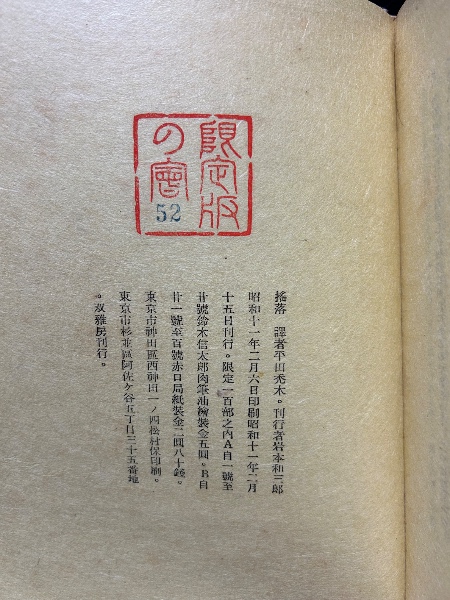 限定版
の會
52
搖落 譯者平田禿木。刊行者岩本和三郎
昭和十一年二月六日印刷昭和十一年二月
十五日刊行。限定一百部之内A自一號至
廿號鈴木信太郎肉筆油繪裝金五圓。B自
廿一號至百號赤日局紙裝金二圓八十錢。
東京市神田區西神田一ノ四松村保印刷。
東京市杉並區阿佐ケ谷五丁目三十五番地
。双雅房刊行。